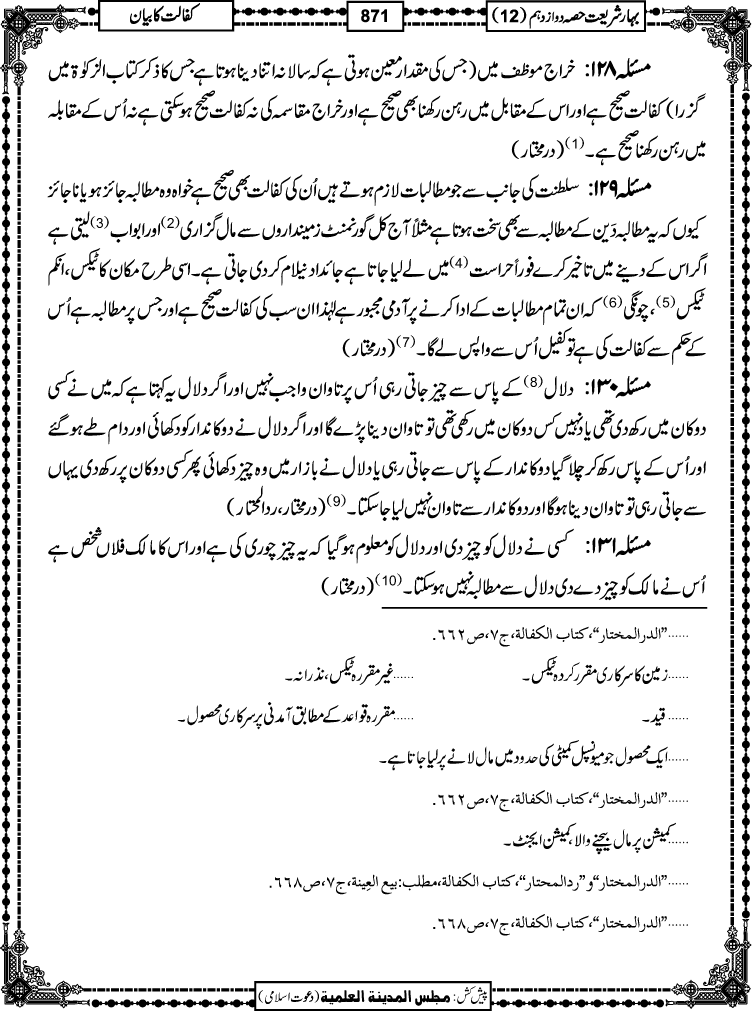 بہارِ شریعت حصہ دوازدہم (12)
871
کفالت کا بیان
مسئلہ ۱۲۸: خراج موظف میں (جس کی مقدار معین ہوتی ہے کہ سالانہ اتنا دینا ہوتا ہے جس کا ذکر کتاب الزکوٰۃ میں
گزرا) کفالت صحیح ہے اور اس کے مقابل میں رہن رکھنا بھی صحیح ہے اور خراج مقاسمہ کی نہ کفالت صحیح ہوسکتی ہے نہ اُس کے مقابلہ
میں رہن رکھنا صحیح ہے۔(1) (درمختار)
مسئلہ ۱۲۹: سلطنت کی جانب سے جو مطالبات لازم ہوتے ہیں اُن کی کفالت بھی صحیح ہے خواہ وہ مطالبہ جائز ہو یا ناجائز
کیوں کہ یہ مطالبہ دَین کے مطالبہ سے بھی سخت ہوتا ہے مثلاً آج کل گورنمنٹ زمینداروں سے مال گزاری(2) اور ابواب(3) لیتی ہے
اگر اس کے دینے میں تاخیر کرے فوراً حراست(4) میں لے لیا جاتا ہے جائداد نیلام کر دی جاتی ہے۔ اسی طرح مکان کا ٹیکس، انکم
ٹیکس(5)، چونگی(6) کہ ان تمام مطالبات کے ادا کرنے پر آدمی مجبور ہے لہٰذا ان سب کی کفالت صحیح ہے اور جس پر مطالبہ ہے اُس
کے حکم سے کفالت کی ہے تو کفیل اُس سے واپس لے گا۔(7) (درمختار)
مسئلہ ۱۳۰: دلال(8) کے پاس سے چیز جاتی رہی اُس پر تاوان واجب نہیں اور اگر دلال یہ کہتا ہے کہ میں نے کسی
دوکان میں رکھ دی تھی یاد نہیں کس دوکان میں رکھی تھی تو تاوان دینا پڑے گا اور اگر دلال نے دوکاندار کو دکھائی اور دام طے ہوگئے
اور اُس کے پاس رکھ کر چلا گیا دوکاندار کے پاس سے جاتی رہی یا دلال نے بازار میں وہ چیز دکھائی پھر کسی دوکان پر رکھ دی یہاں
سے جاتی رہی تو تاوان دینا ہوگا اور دوکاندار سے تاوان نہیں لیا جاسکتا۔(9) (درمختار، ردالمحتار)
مسئلہ ۱۳۱: کسی نے دلال کو چیز دی اور دلال کو معلوم ہوگیا کہ یہ چیز چوری کی ہے اور اس کا مالک فلاں شخص ہے
اُس نے مالک کو چیز دے دی دلال سے مطالبہ نہیں ہوسکتا۔(10) (درمختار)
......"الدرالمختار"، کتاب الکفالة، ج۷، ص۶۶۲.
......زمین کا سرکاری مقرر کردہ ٹیکس۔ ......غیر مقررہ ٹیکس، نذرانہ۔
......قید۔ ......مقررہ قواعد کے مطابق آمدنی پر سرکاری محصول۔
......ایک محصول جو میونسپل کمیٹی کی حدود میں مال لانے پر لیا جاتا ہے۔
......"الدرالمختار"، کتاب الکفالة، ج۷، ص۶۶۲.
......کمیشن پر مال بیچنے والا، کمیشن ایجنٹ۔
......"الدرالمختار" و "ردالمحتار"، کتاب الکفالة، مطلب: بیع العِینة، ج۷، ص۶۶۸.
......"الدرالمختار"، کتاب الکفالة، ج۷، ص۶۶۸.
پیش کش: مجلس المدینة العلمیة (دعوت اسلامی)